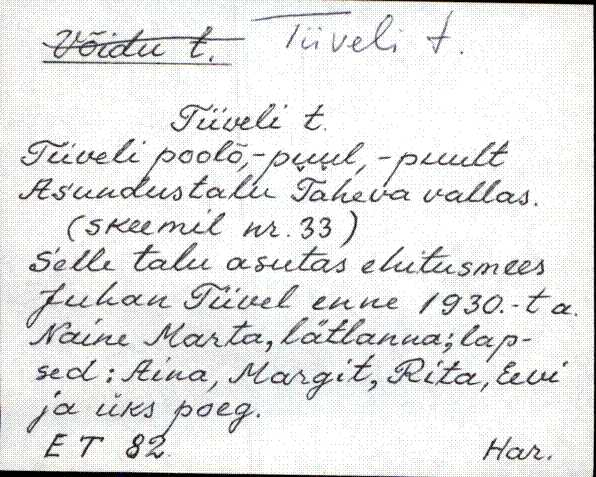 Võidu t. Tiiveli t.
Tiiveli t.
Tiiveli poolõ, -puul, -puult
Asundustalu Taheva vallas.
(skeemil nr. 33)
Selle talu asutas ehitusmees
Juhan Tiivel enne 1930.-t a.
Naine Marta, lätlanna; lap-
sed: Aina, Margit, Rita, Eevi
ja üks poeg.
ET 82. Har.